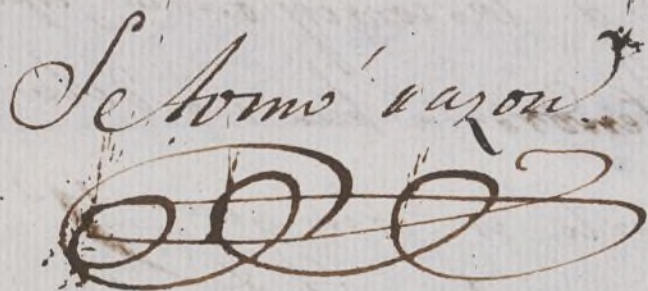 Se tomó razon